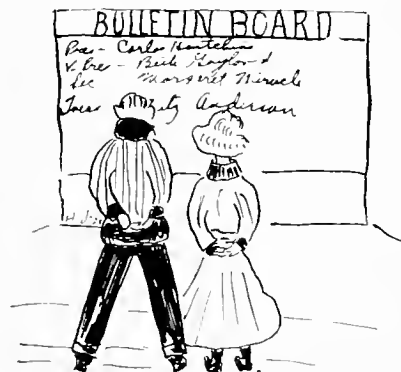 BULLETIN BOARD
Pres - Carlos
V. Pres - Gaylord
Sec Margaret Miracle
Treas Anderson